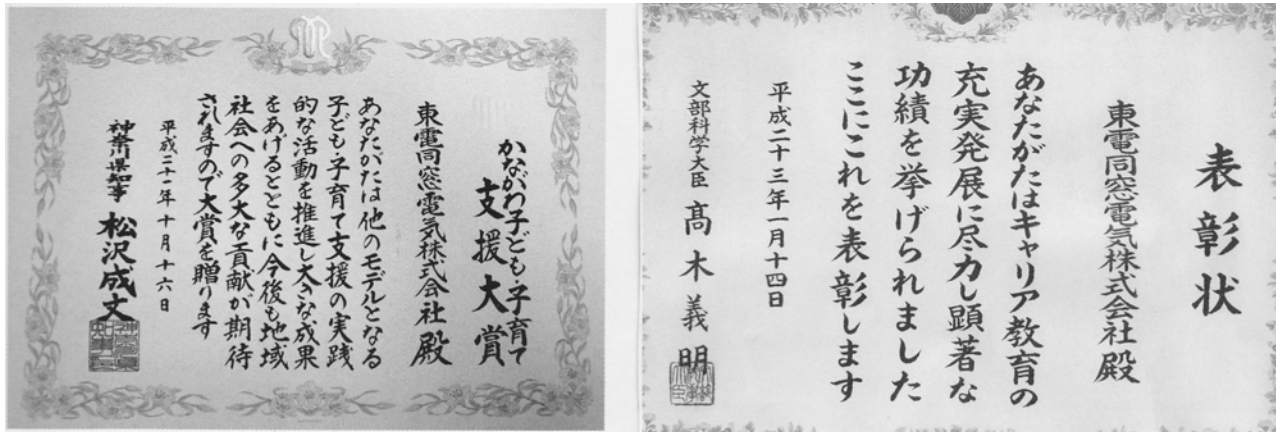 かながわ子ども・子育て
支援大賞
東電同窓電気株式会社 殿
あなたがたは他のモデルとなる
子ども・子育て支援の実践
的な活動を推進し大きな成果
をあげるとともに今後も地域
社会への多大な貢献が期待
されますので大賞を贈ります
平成二十一年十月十六日
神奈川県知事 松沢成文
表彰状
東電同窓電気株式会社 殿
あなたがたはキャリア教育の
充実発展に尽力し顕著な
功績を挙げられました
ここにこれを表彰します
平成二十三年一月十四日
文部科学大臣 髙木義明